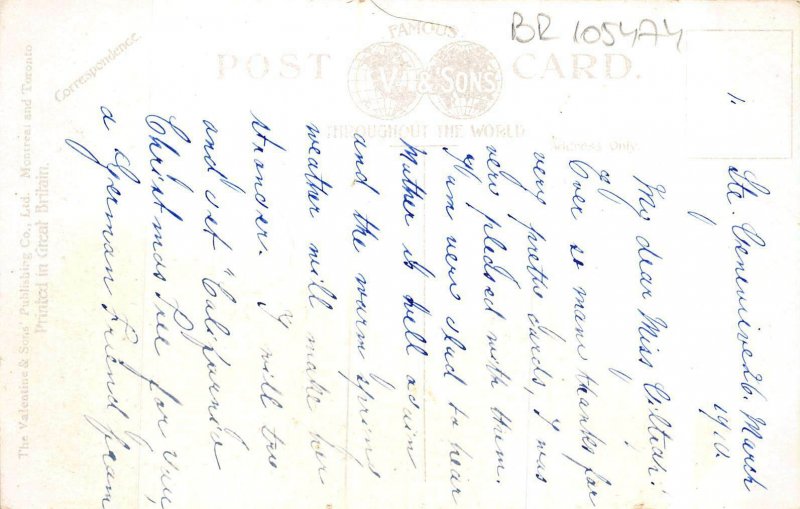 BR 105474
FAMOUS
POST CARD.
VAL & SONS
THROUGHOUT THE WORLD
Correspondence.
Address Only
The Valentine & Sons Publishing Co., Ltd. Montreal and Toronto
Printed in Great Britain.
1.
Ste. Genevieve 26. March
1910.
My dear Miss
Ever so many thanks for
of
very pretty cards, I was
very pleased with them.
I am very glad to hear
Mother is well again
and the warm spring
weather will make her
stronger. I will try
and get "California
Christmas tree" for you,
a German friend from